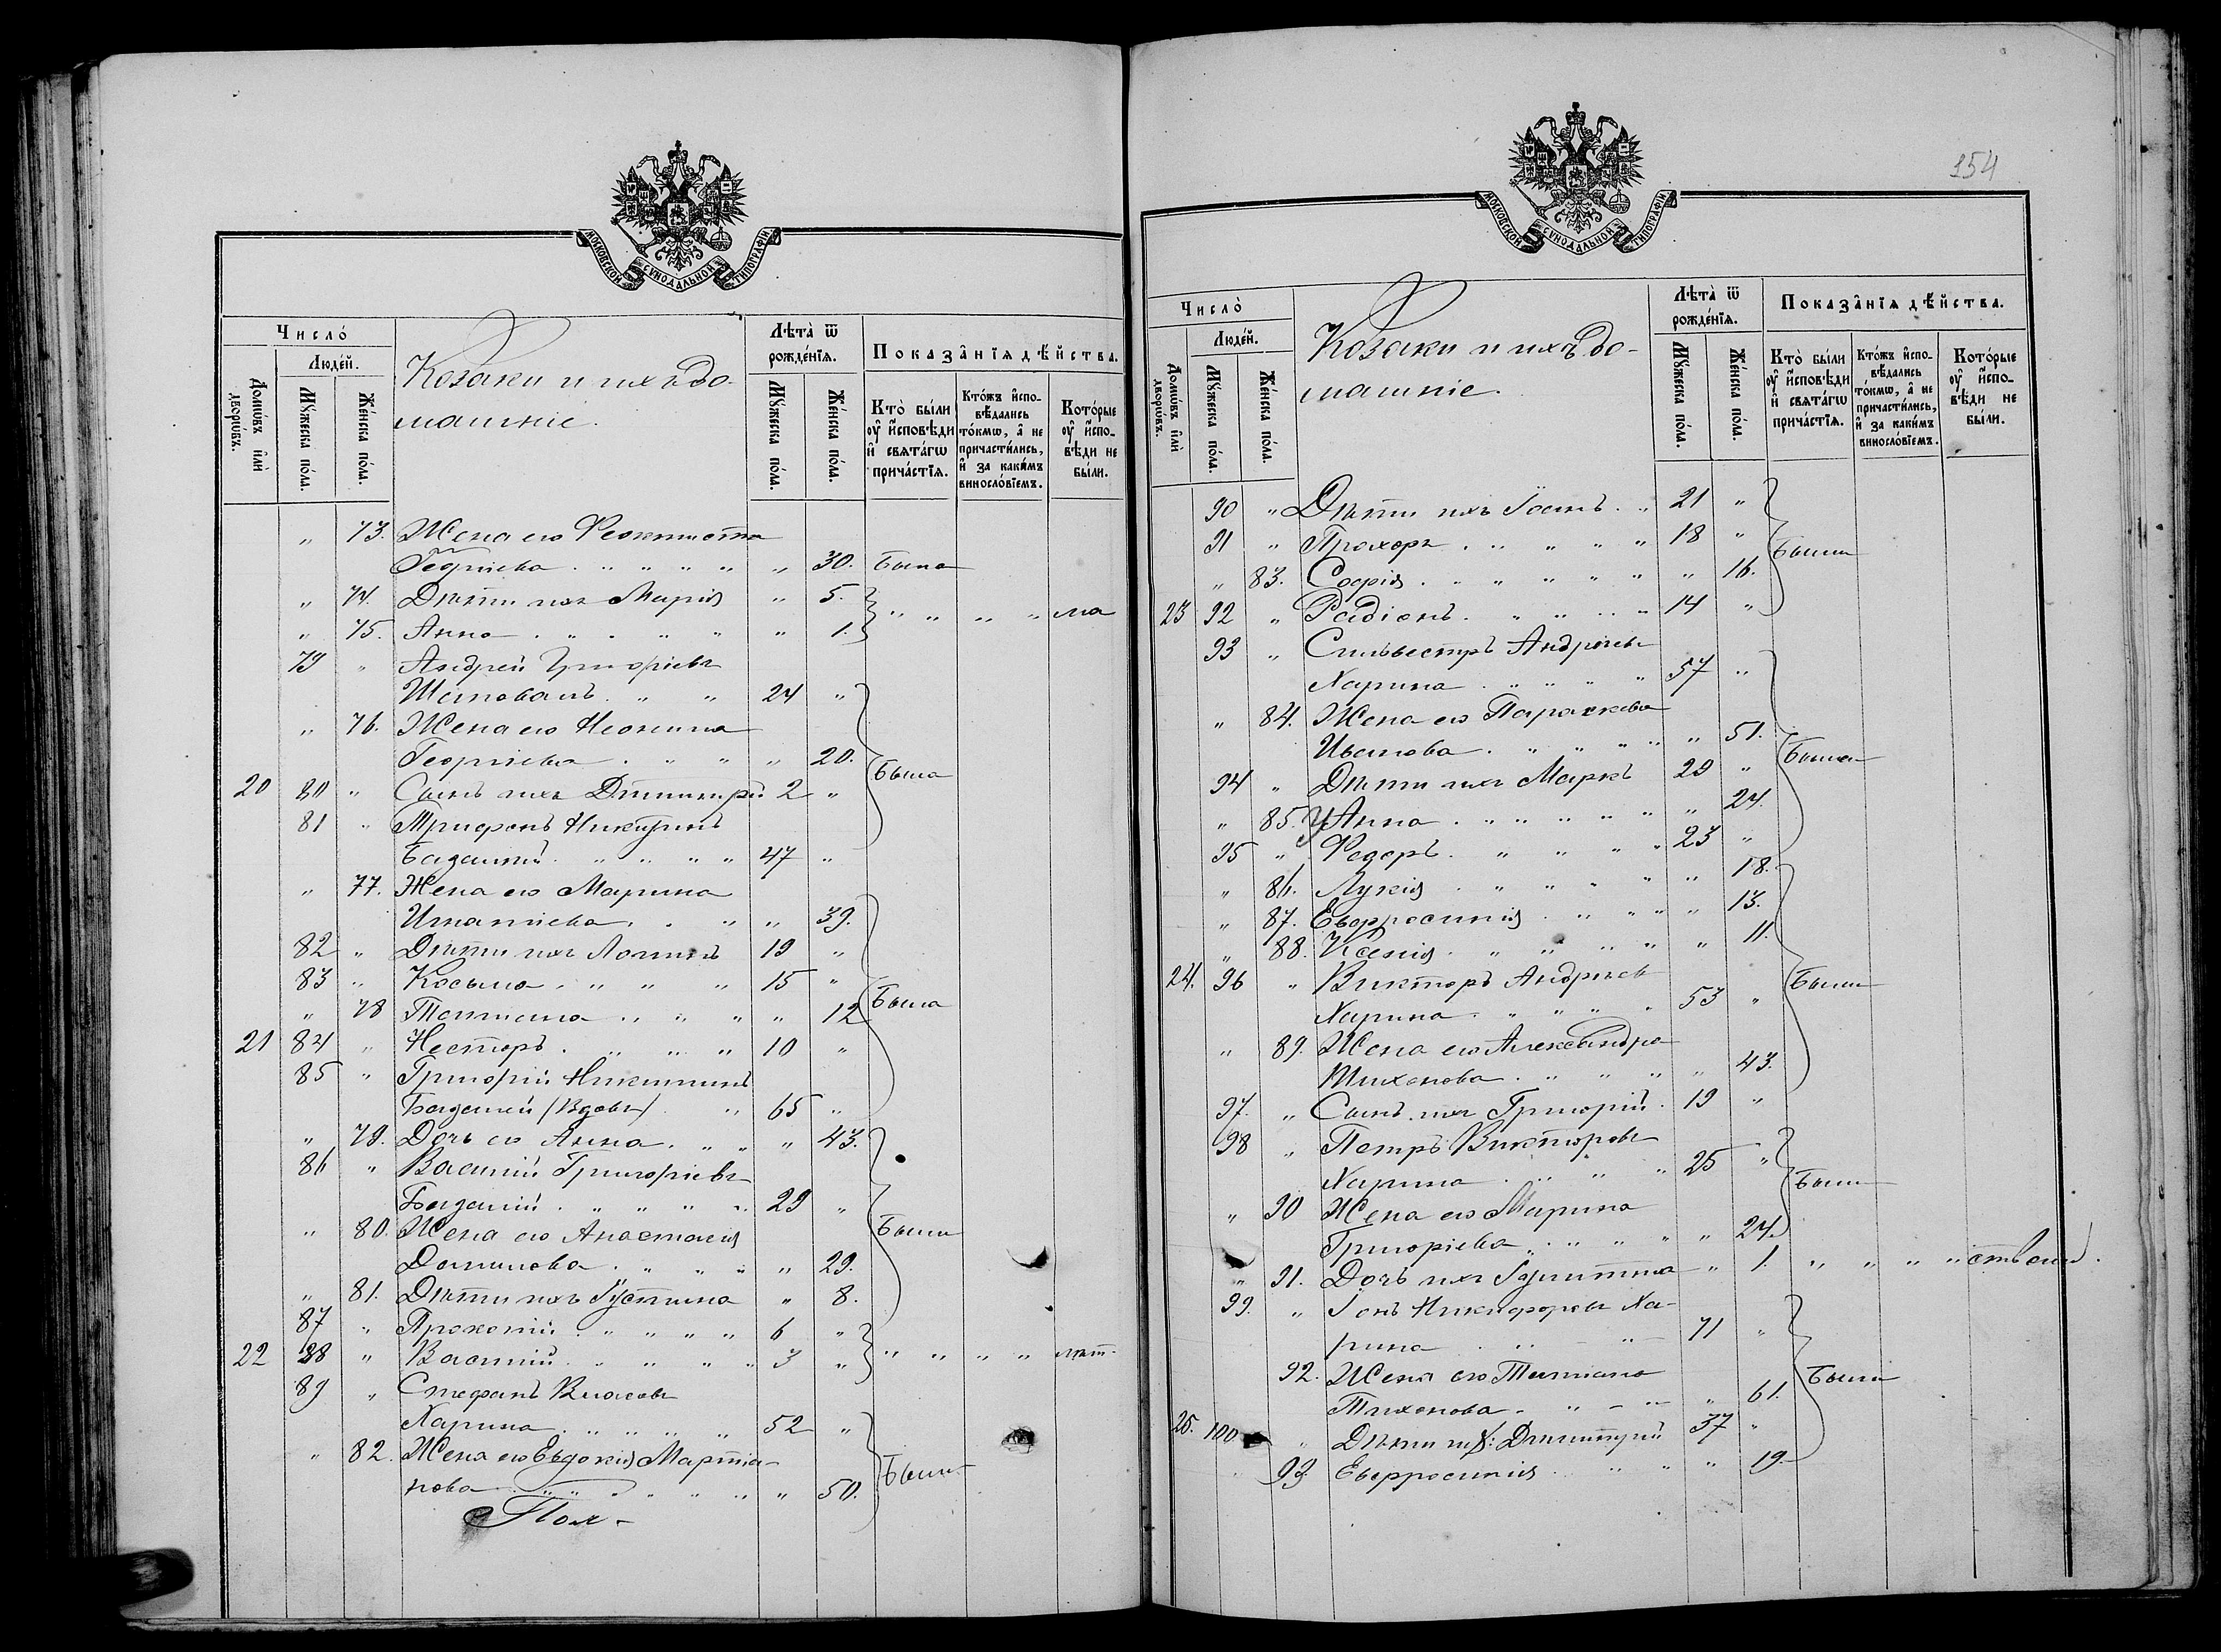 МОСКОВСКОЙ СѴНОДАЛЬНОЙ ТИПОГРАФІИ
Число̀
Людей.
Домѡ́въ и҆лѝ дворѡ́въ.
Мꙋ́жеска по́ла.
Же́нска по́ла.
Козаки и ихъ до-
машніе.
Лѣта̀ ѿ рожде́нїѧ.
Мꙋ́жеска по́ла.
Же́нска по́ла.
Показа̑нїѧ дѣ́йства.
Кто̀ бы́ли ᲂу҆ и҆сповѣ́ди и҆ свѧта́гѡ прича́стїѧ.
Кто́жъ и҆спо-вѣ́дались то́кмѡ, а҆ не причасти́лись, и҆ за каки́мъ виносло́вїемъ.
Кото́рые ᲂу҆ и҆спо-вѣ́ди не бы́ли.
" 73. Жена его Феоктиста
Георгіева . " " " " " 30. Была
" 74. Дѣти ихъ Марія " 5.
" 75. Анна . " . " " " 1. " " " " ма
79 " Андрей Григоріевъ
Шаповалъ . " " 24 "
" 76. Жена его Неонила
Георгіева . " " " 20. Была
20 80 " Сынъ ихъ Дмитрій 2 "
81 " Трифонъ Никитинъ
Багацкій . " " " " 47 "
" 77. Жена его Марина
Игнатіева . . " " 39.
82 " Дѣти ихъ Логинъ 19 "
83 " Косьма . " " " 15 "
" 78 Татіана . " " " " 12 Была
21 84 " Несторъ . " " " 10 "
85 " Григорій Никитинъ
(Вдовъ) . " 65 "
" 79. Дочь его Анна . " " " 43.
86 " Василій Григоріевъ
. " " " " 29 "
" 80. Жена его Анастасія Были
Данилова . " " " " 29.
" 81. Дѣти ихъ Іустина " 8.
87 " Прокопій . " " " " 6 "
22 88 " Василій . " " " " 3 " " " " " лѣт.
89 " Стефанъ Власовъ
Харина . " " " " 52 "
" 82. Жена его Евдокія Мартиа-
нова . " " " " " " 50. Были
Пол-
154
МОСКОВСКОЙ СѴНОДАЛЬНОЙ ТИПОГРАФІИ
Число̀
Людей.
Домѡ́въ и҆лѝ дворѡ́въ.
Мꙋ́жеска по́ла.
Же́нска по́ла.
Козаки и ихъ до-
машніе.
Лѣта̀ ѿ рожде́нїѧ.
Мꙋ́жеска по́ла.
Же́нска по́ла.
Показа̑нїѧ дѣ́йства.
Кто̀ бы́ли ᲂу҆ и҆сповѣ́ди и҆ свѧта́гѡ прича́стїѧ.
Кто́жъ и҆спо-вѣ́дались то́кмѡ, а҆ не причасти́лись, и҆ за каки́мъ виносло́вїемъ.
Кото́рые ᲂу҆ и҆спо-вѣ́ди не бы́ли.
90 " Дѣти ихъ Іоанъ . " 21 "
91 " Прохоръ . " " " " 18 " Были
" 83. Софія . " " " " " " 16.
23 92 " Радіонъ . " " " " 14 "
93 " Сильвестръ Андріевъ
Харина . " " " " 57 "
" 84. Жена его Параскева
Иванова . " " " " " 51. Были
94 " Дѣти ихъ Маркъ 29 "
" 85. Анна . " " " " " " 24.
95 " Федоръ . " " " " 23 "
" 86. Лукія . " " " " " 18.
" 87. Евфросинія . " " " " 13.
" 88. Ксенія . " " " " " 11.
24. 96 " Викторъ Андріевъ Были
Харина . " " " " 53 "
" 89. Жена его Александра
Тихонова . " " " " 43.
97. " Сынъ ихъ Григорій . 19 "
98 " Петръ Викторовъ
Харина . " " " 25 " Были
" 90 Жена его Марина
Григоріева . " " " " 24.
" 91. Дочь ихъ " 1. " " " "
99. " Іонъ Никифоровъ Ха-
рина . " " 71 "
92. Жена его Татіана Были
Тихонова . " " " " 61.
25. 100 " Дѣти ихъ: Димитрій 37 "
" 93 Евфросинія . " " " 19.